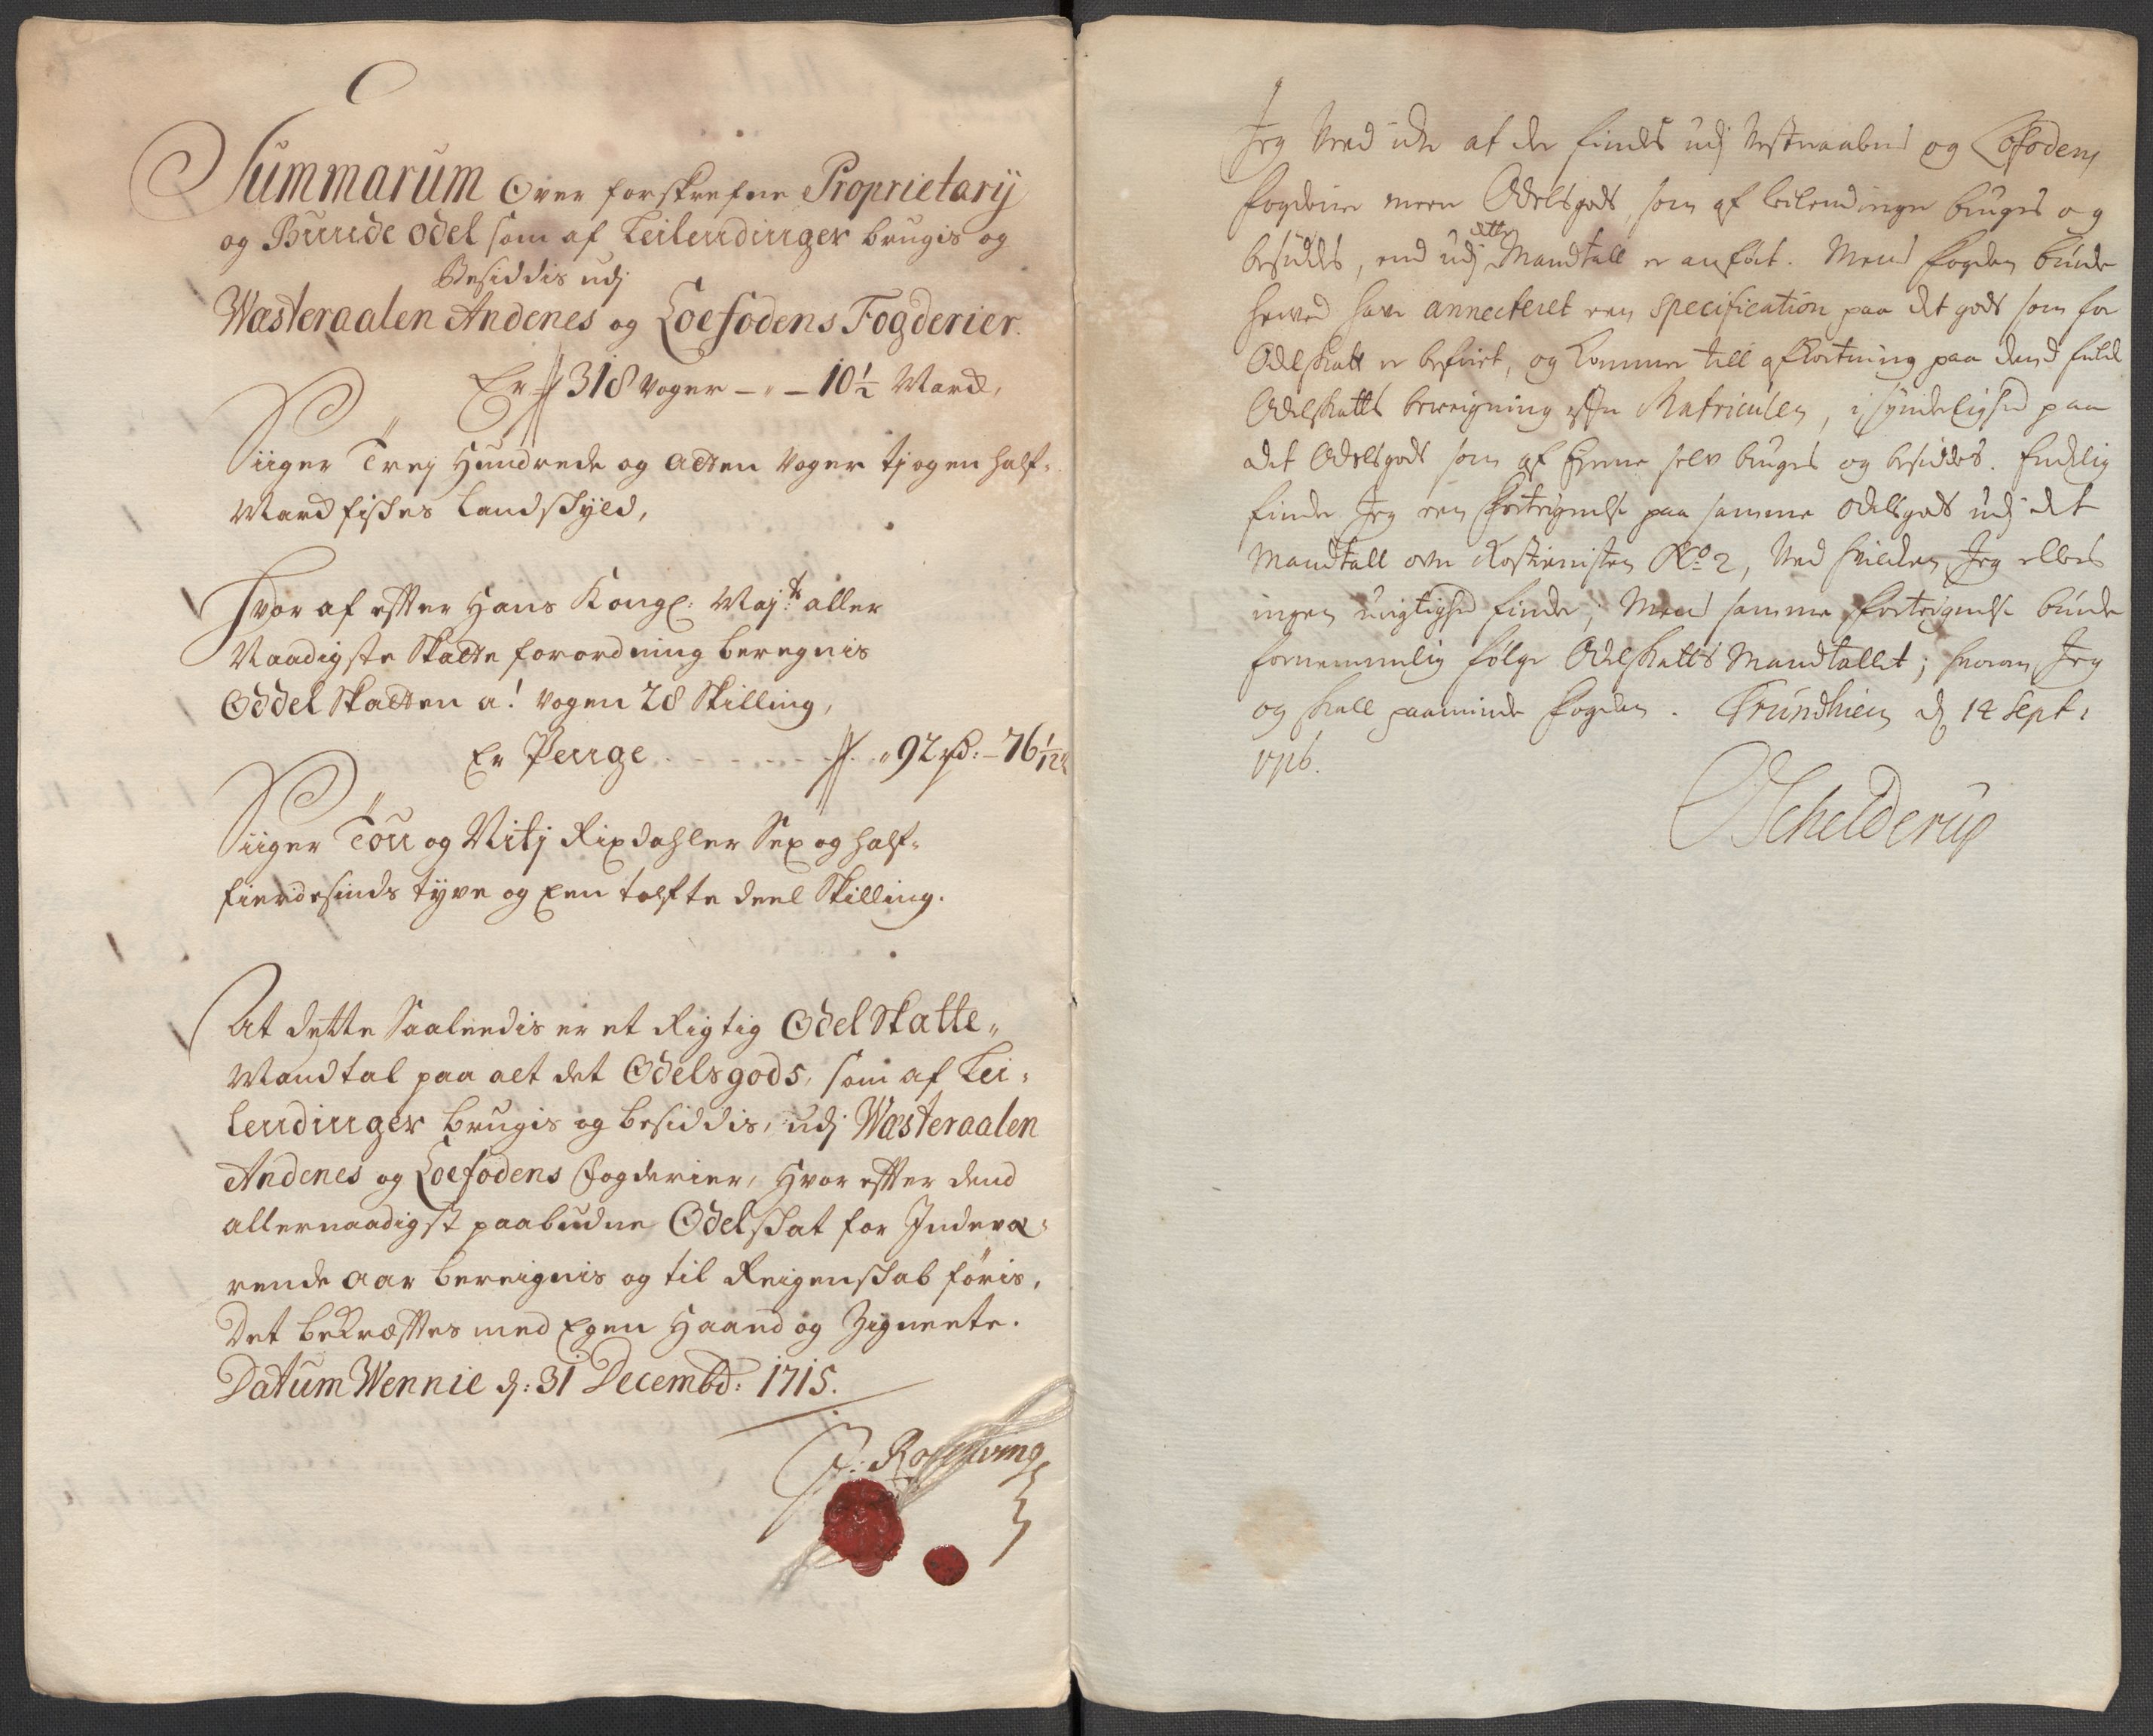 Summarum Over forskrefne Proprietarij
og Bunde Odel som af Leilendinger brugis og
Besiddis udj
Wæsteraalen Andenes og Loefodens Fogderier.
Er 318 Voger - " - 10½ Marck,
Siiger Trej Hundrede og Atten Voger tj og en half-
Marck fiskes Landskyld,
Hvor af effter Hans Kongl: Maj:ts aller
Naadigste Skatte forordning beregnis
Oddel Skatten a! Vogen 28 Skilling,
Er Penge - - - - - - 92 rd: - 76 1/12 s
Siiger Tou og Nitj Rixdahler Sex og half-
fierdesinds tyve og Een tolfte deel Skilling.
At dette Saaledis er et Rigtig Odel Skatte-
Mandtal paa alt det Odelsgods, som af Lei-
lendinger brugis og besiddis, udj Wæsteraalen
Andenes og Loefodens Fogderier, Hvor effter dend
allernaadigst paabudne Odelskat for Indevæ-
rende Aar bereignis og til Reigenskab føris,
Det bekræfftes med Egen Haand og Zignete.
Datum Wennie d: 31 Decembd: 1715.
Jeg Ved icke at der findes udj Vesteraalens og Lofodens
Fogderie meere Odelsgods, som af leilendinger bruges og
besiddes, end udj dette Mandtall er anført. Mens Fogden burde
herved have annecteret een specification paa det gods som for
Odelskatt er befriet, og kommer till afkortning paa dend fulde
Odelskatts bereigning efter Matriculen, i synderlighed paa
det Odelsgods som af Eyerne selv bruges og besiddes. Endelig
finder Jeg een fortegnelse paa samme odelsgods udj det
Mandtall over Rostienisten No 2, Ved hvilken Jeg ellers
ingen urigtighed finder; Mens samme fortegnelse burde
fornemmelig følge Odelskatts Mandtallet; hvorom Jeg
og skall paaminde Fogden. Trundhiem d 14 Sept:
1716.
Schelderup